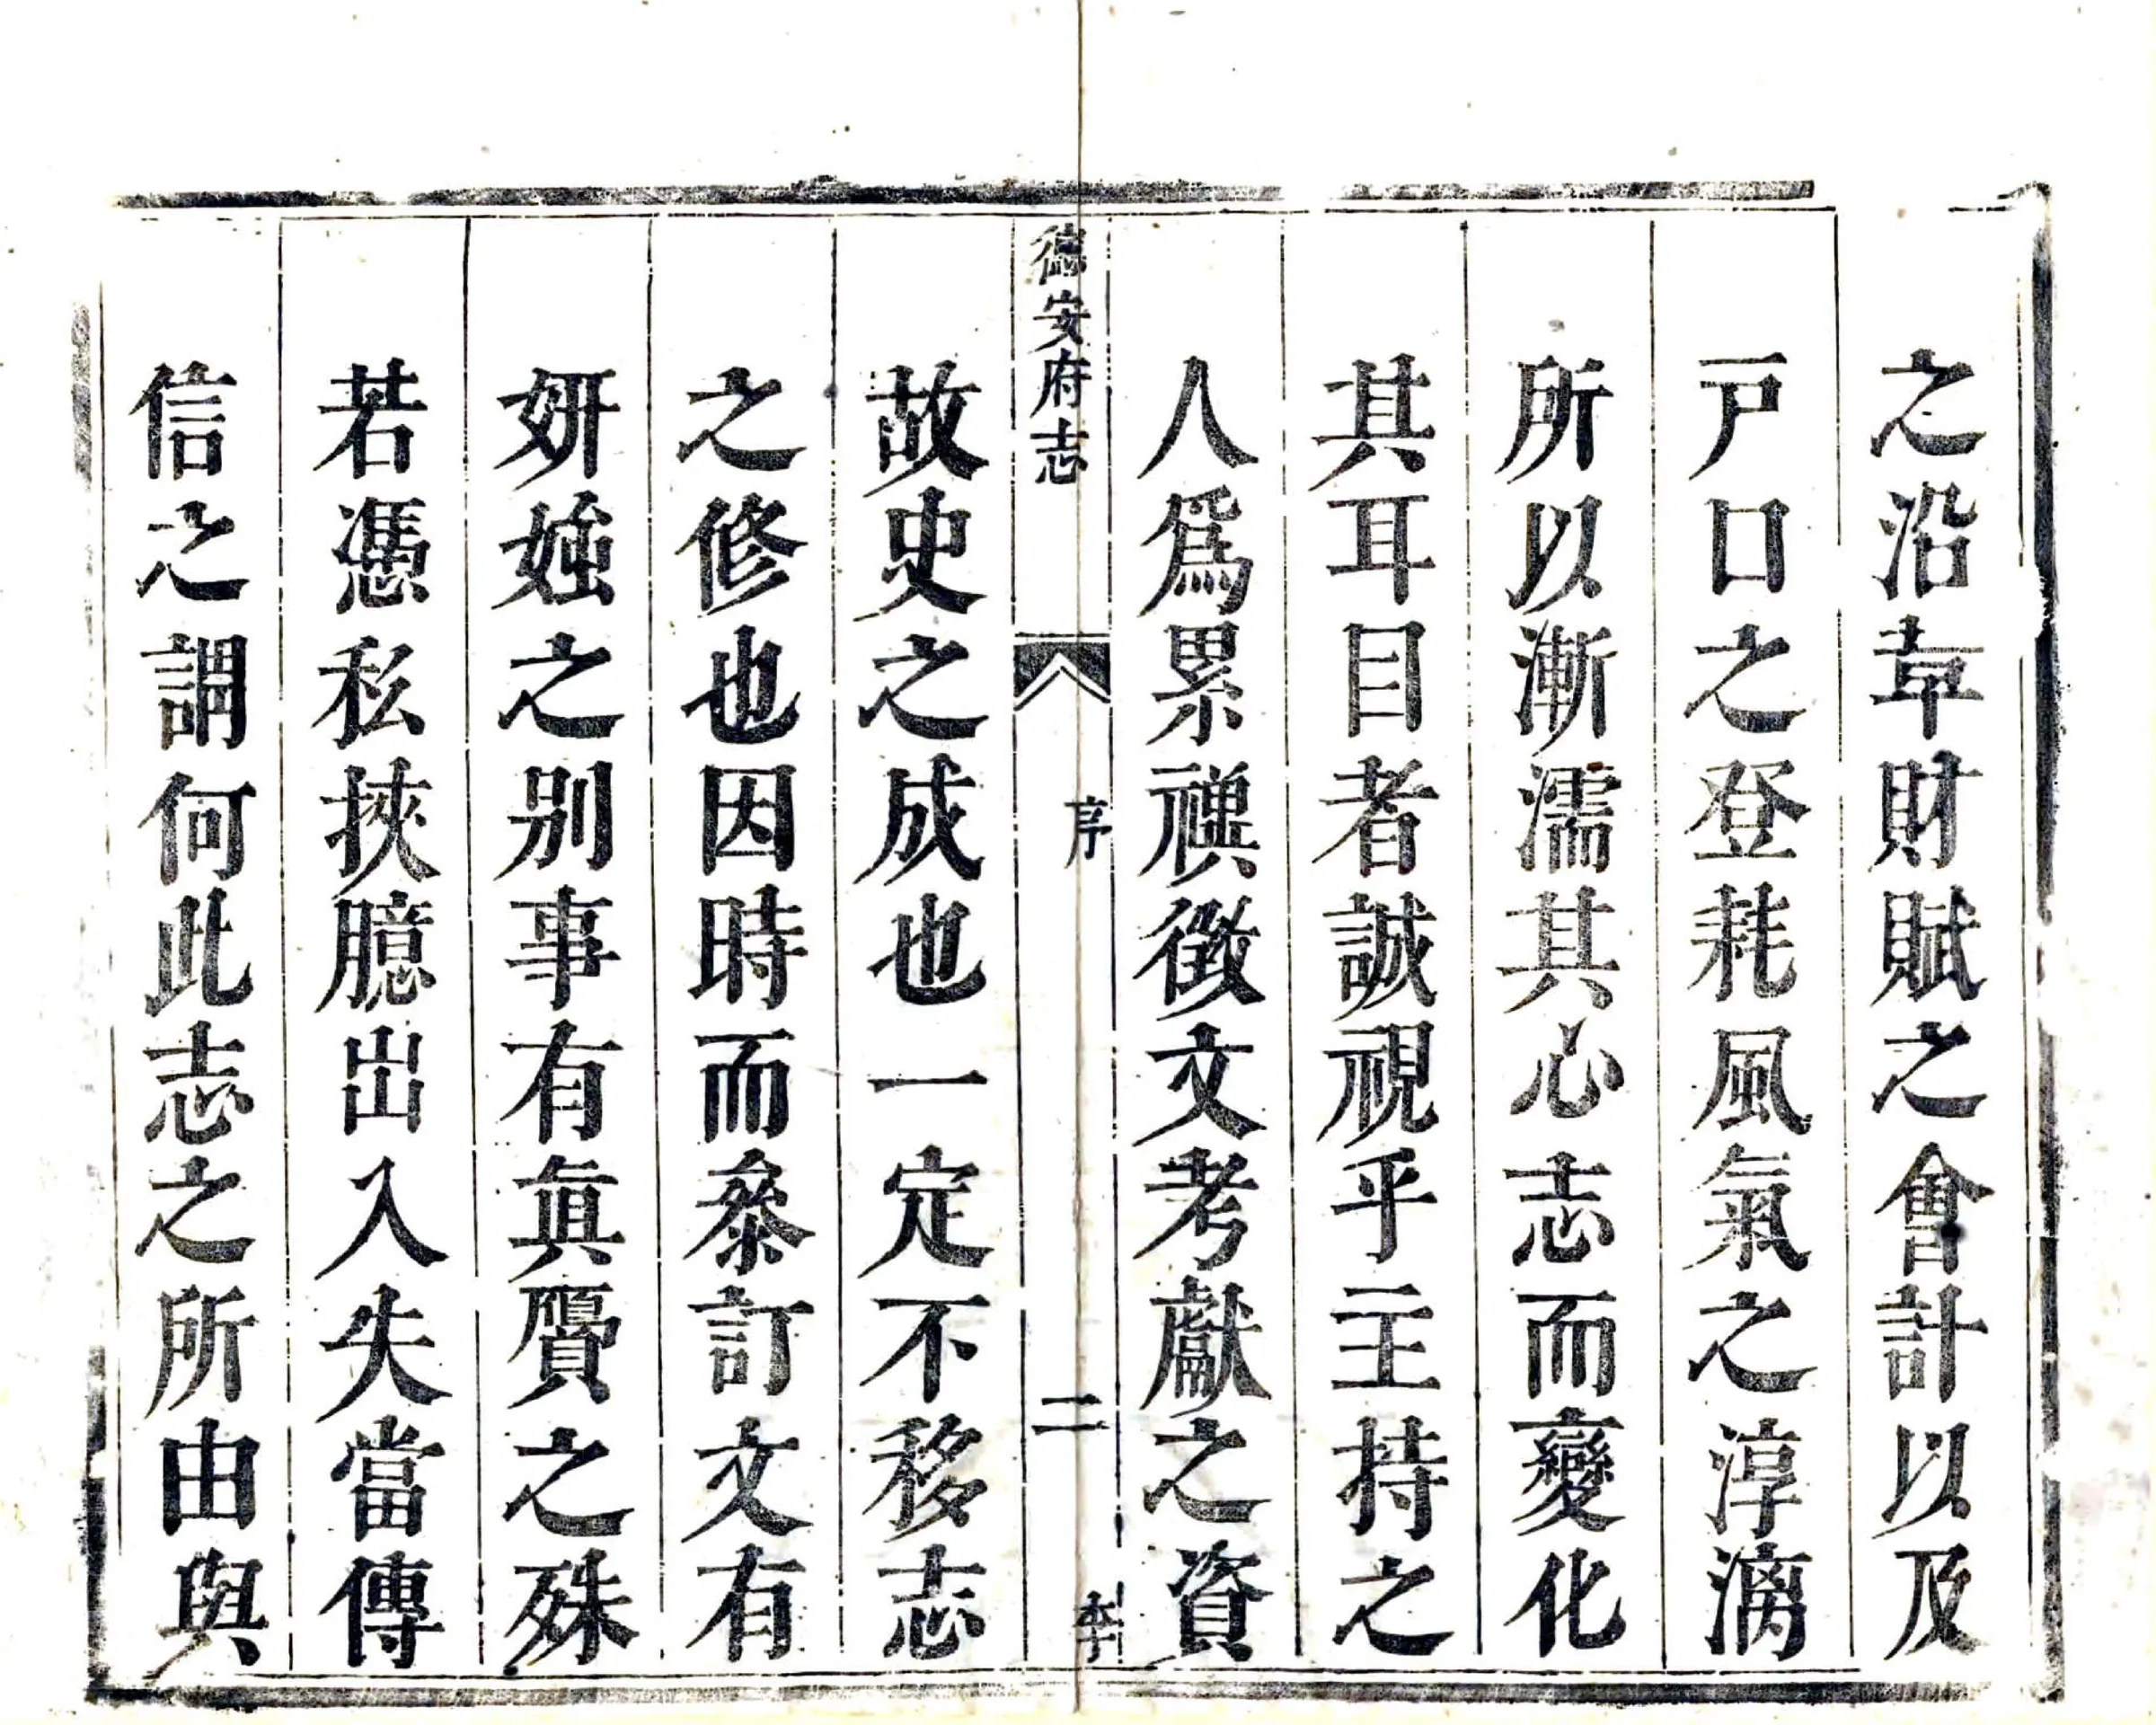 之沿革財賦之會計以及
戸口之登耗風氣之淳漓
所以漸濡其心志而變化
其耳目者誠視乎主持之
人爲累禩徴文考獻之資
德安府志
序
二
故史之成也一定不移志
之修也因時而叅訂文有
妍媸之别事有眞贋之殊
若慿私挾臆出入失當傳
信之謂何此志之所由與